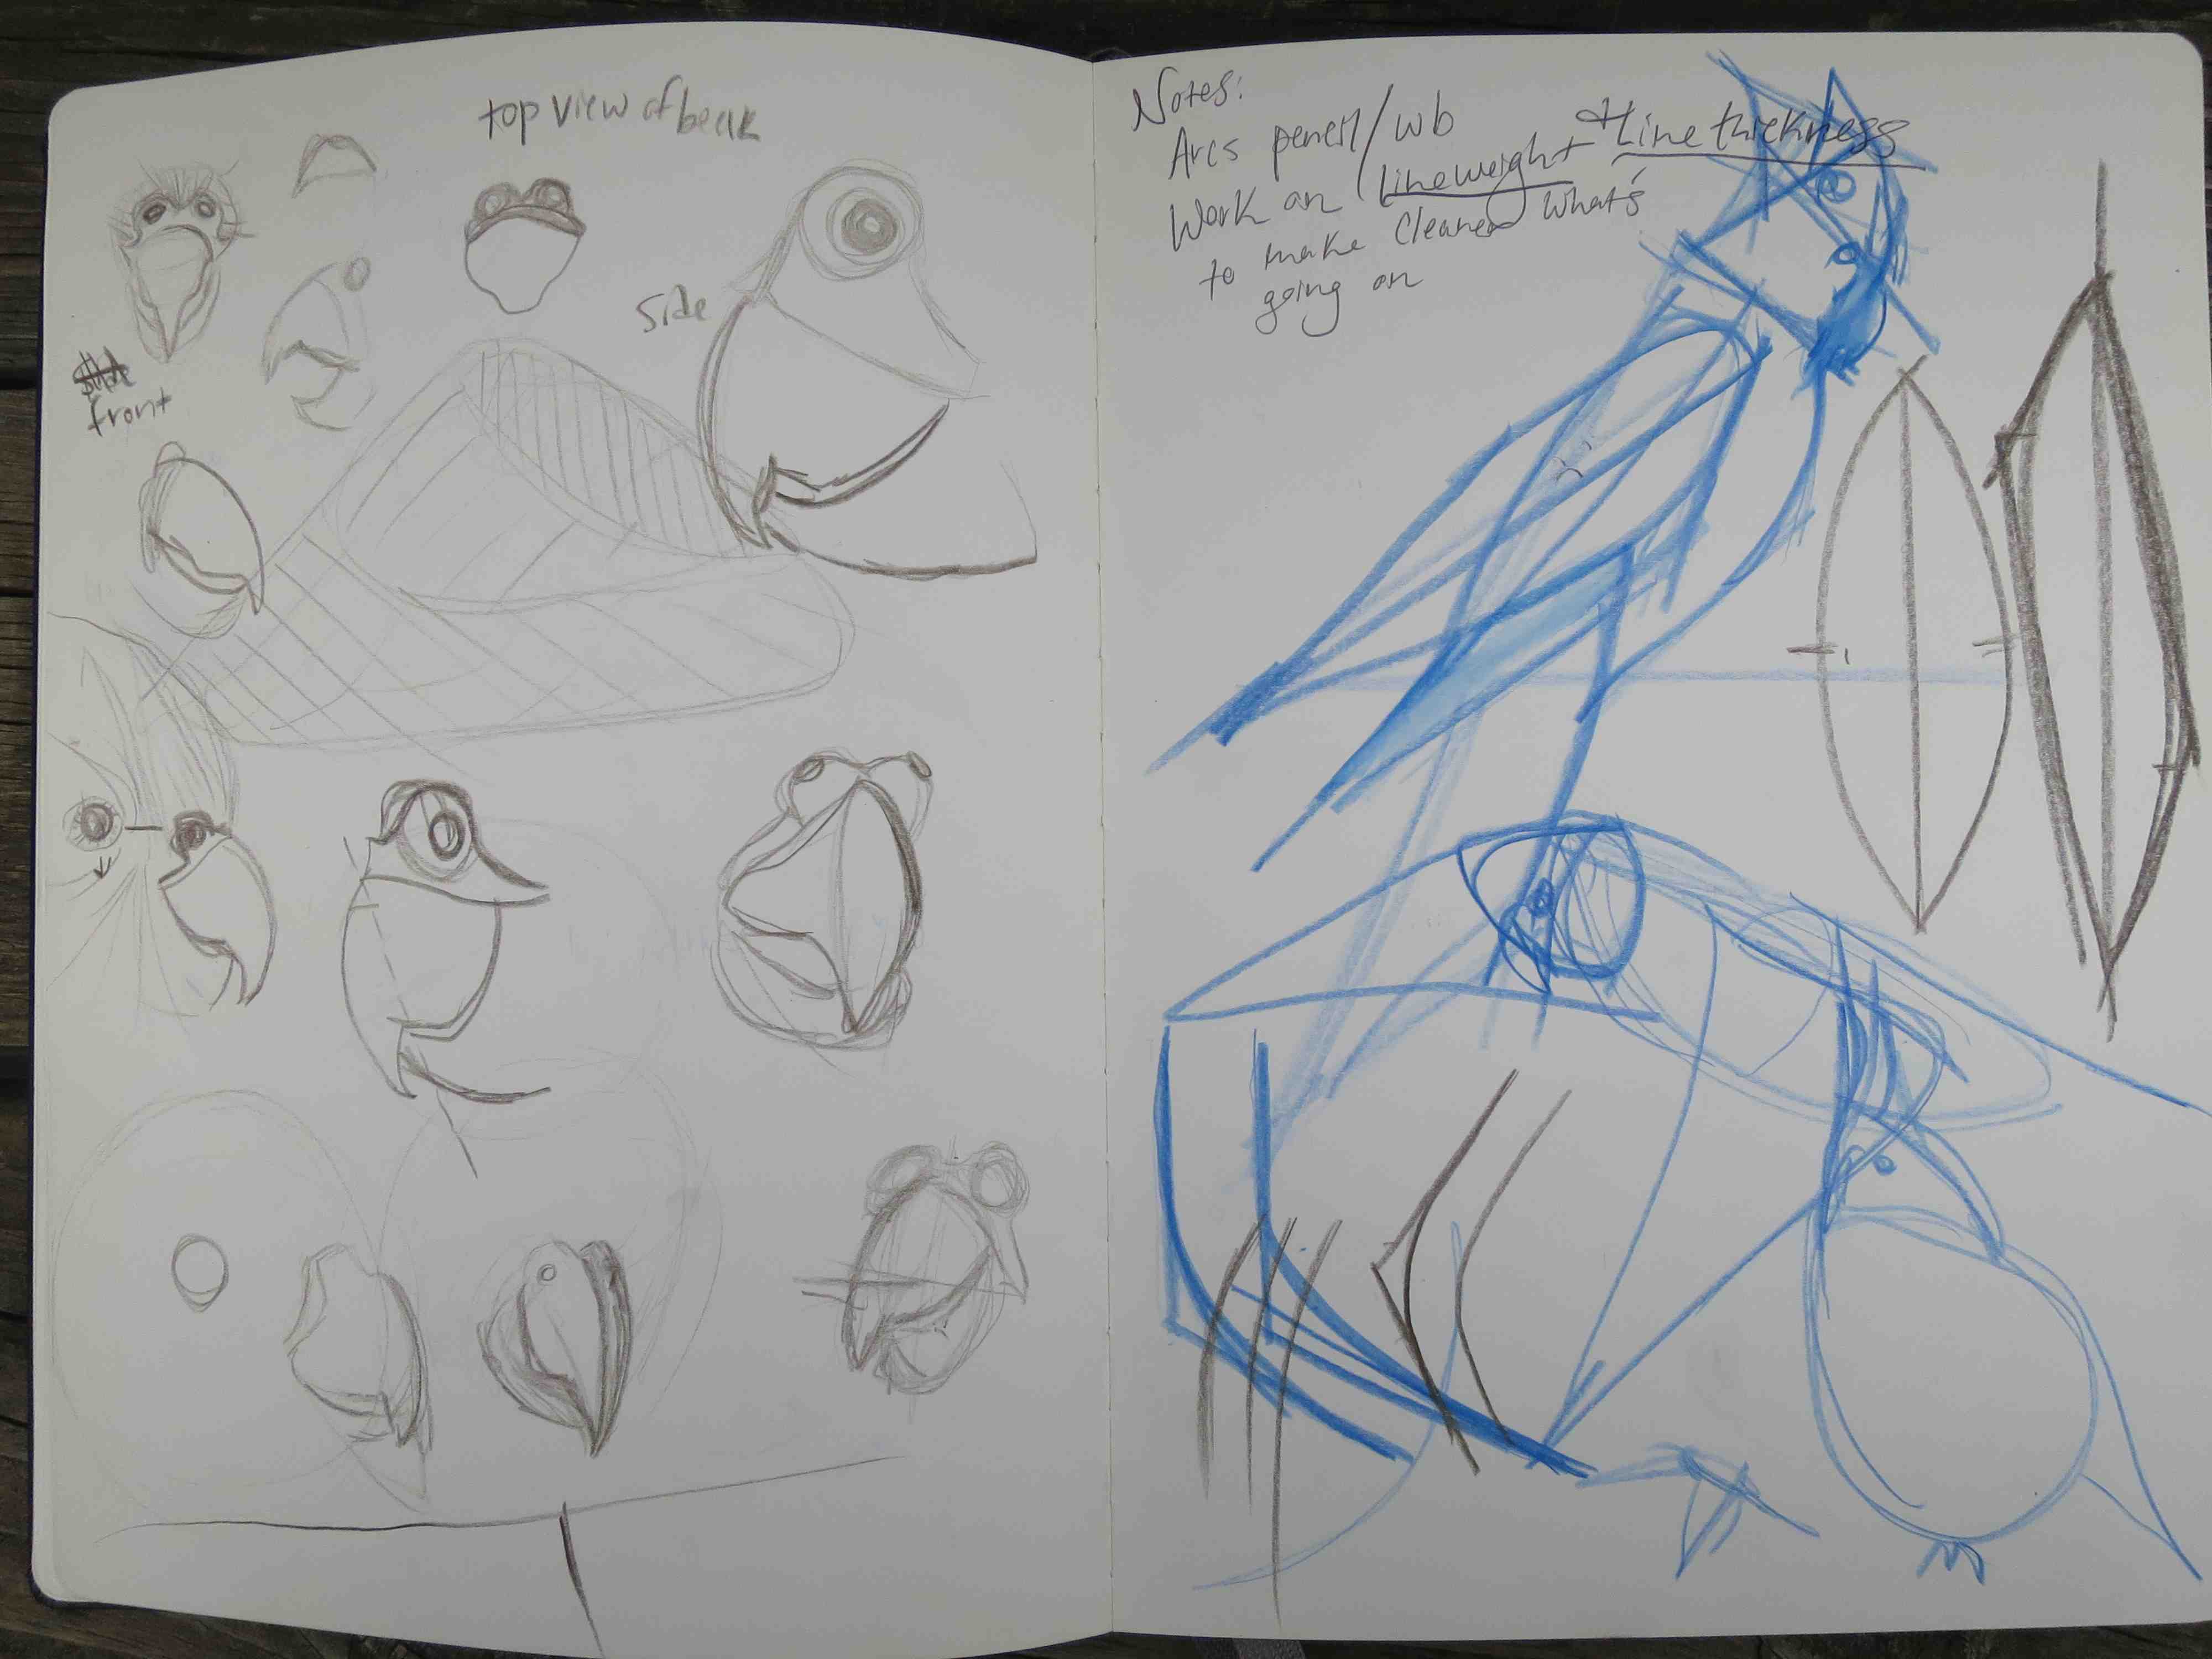 top view of beak
side
front
Notes:
Arcs pencil/wb
Work on lineweight + line thickness
to make cleaner what's
going on